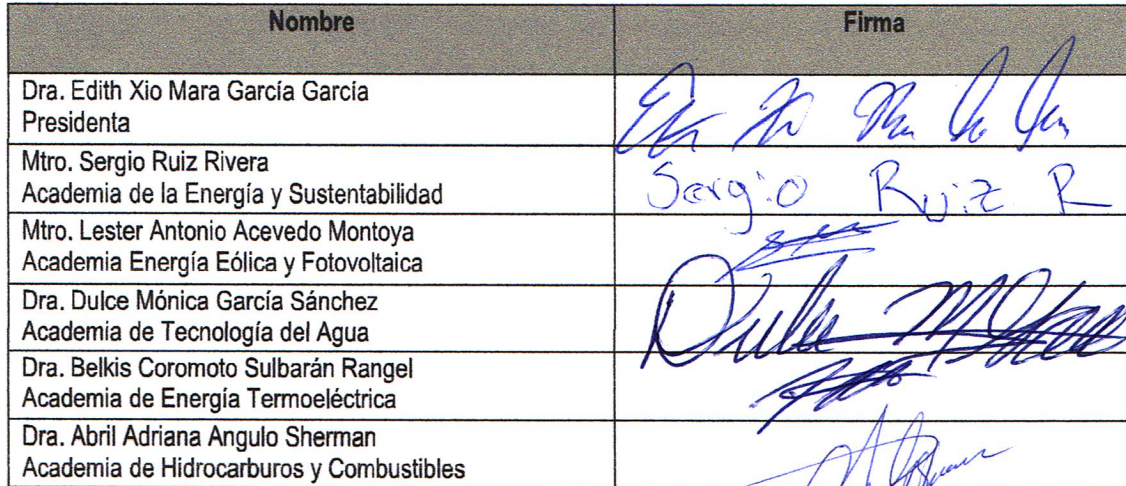 Nombre Firma
Dra. Edith Xio Mara García García
Presidenta
Mtro. Sergio Ruiz Rivera Sergio Ruiz R
Academia de la Energía y Sustentabilidad
Mtro. Lester Antonio Acevedo Montoya
Academia Energía Eólica y Fotovoltaica
Dra. Dulce Mónica García Sánchez
Academia de Tecnología del Agua
Dra. Belkis Coromoto Sulbarán Rangel
Academia de Energía Termoeléctrica
Dra. Abril Adriana Angulo Sherman
Academia de Hidrocarburos y Combustibles